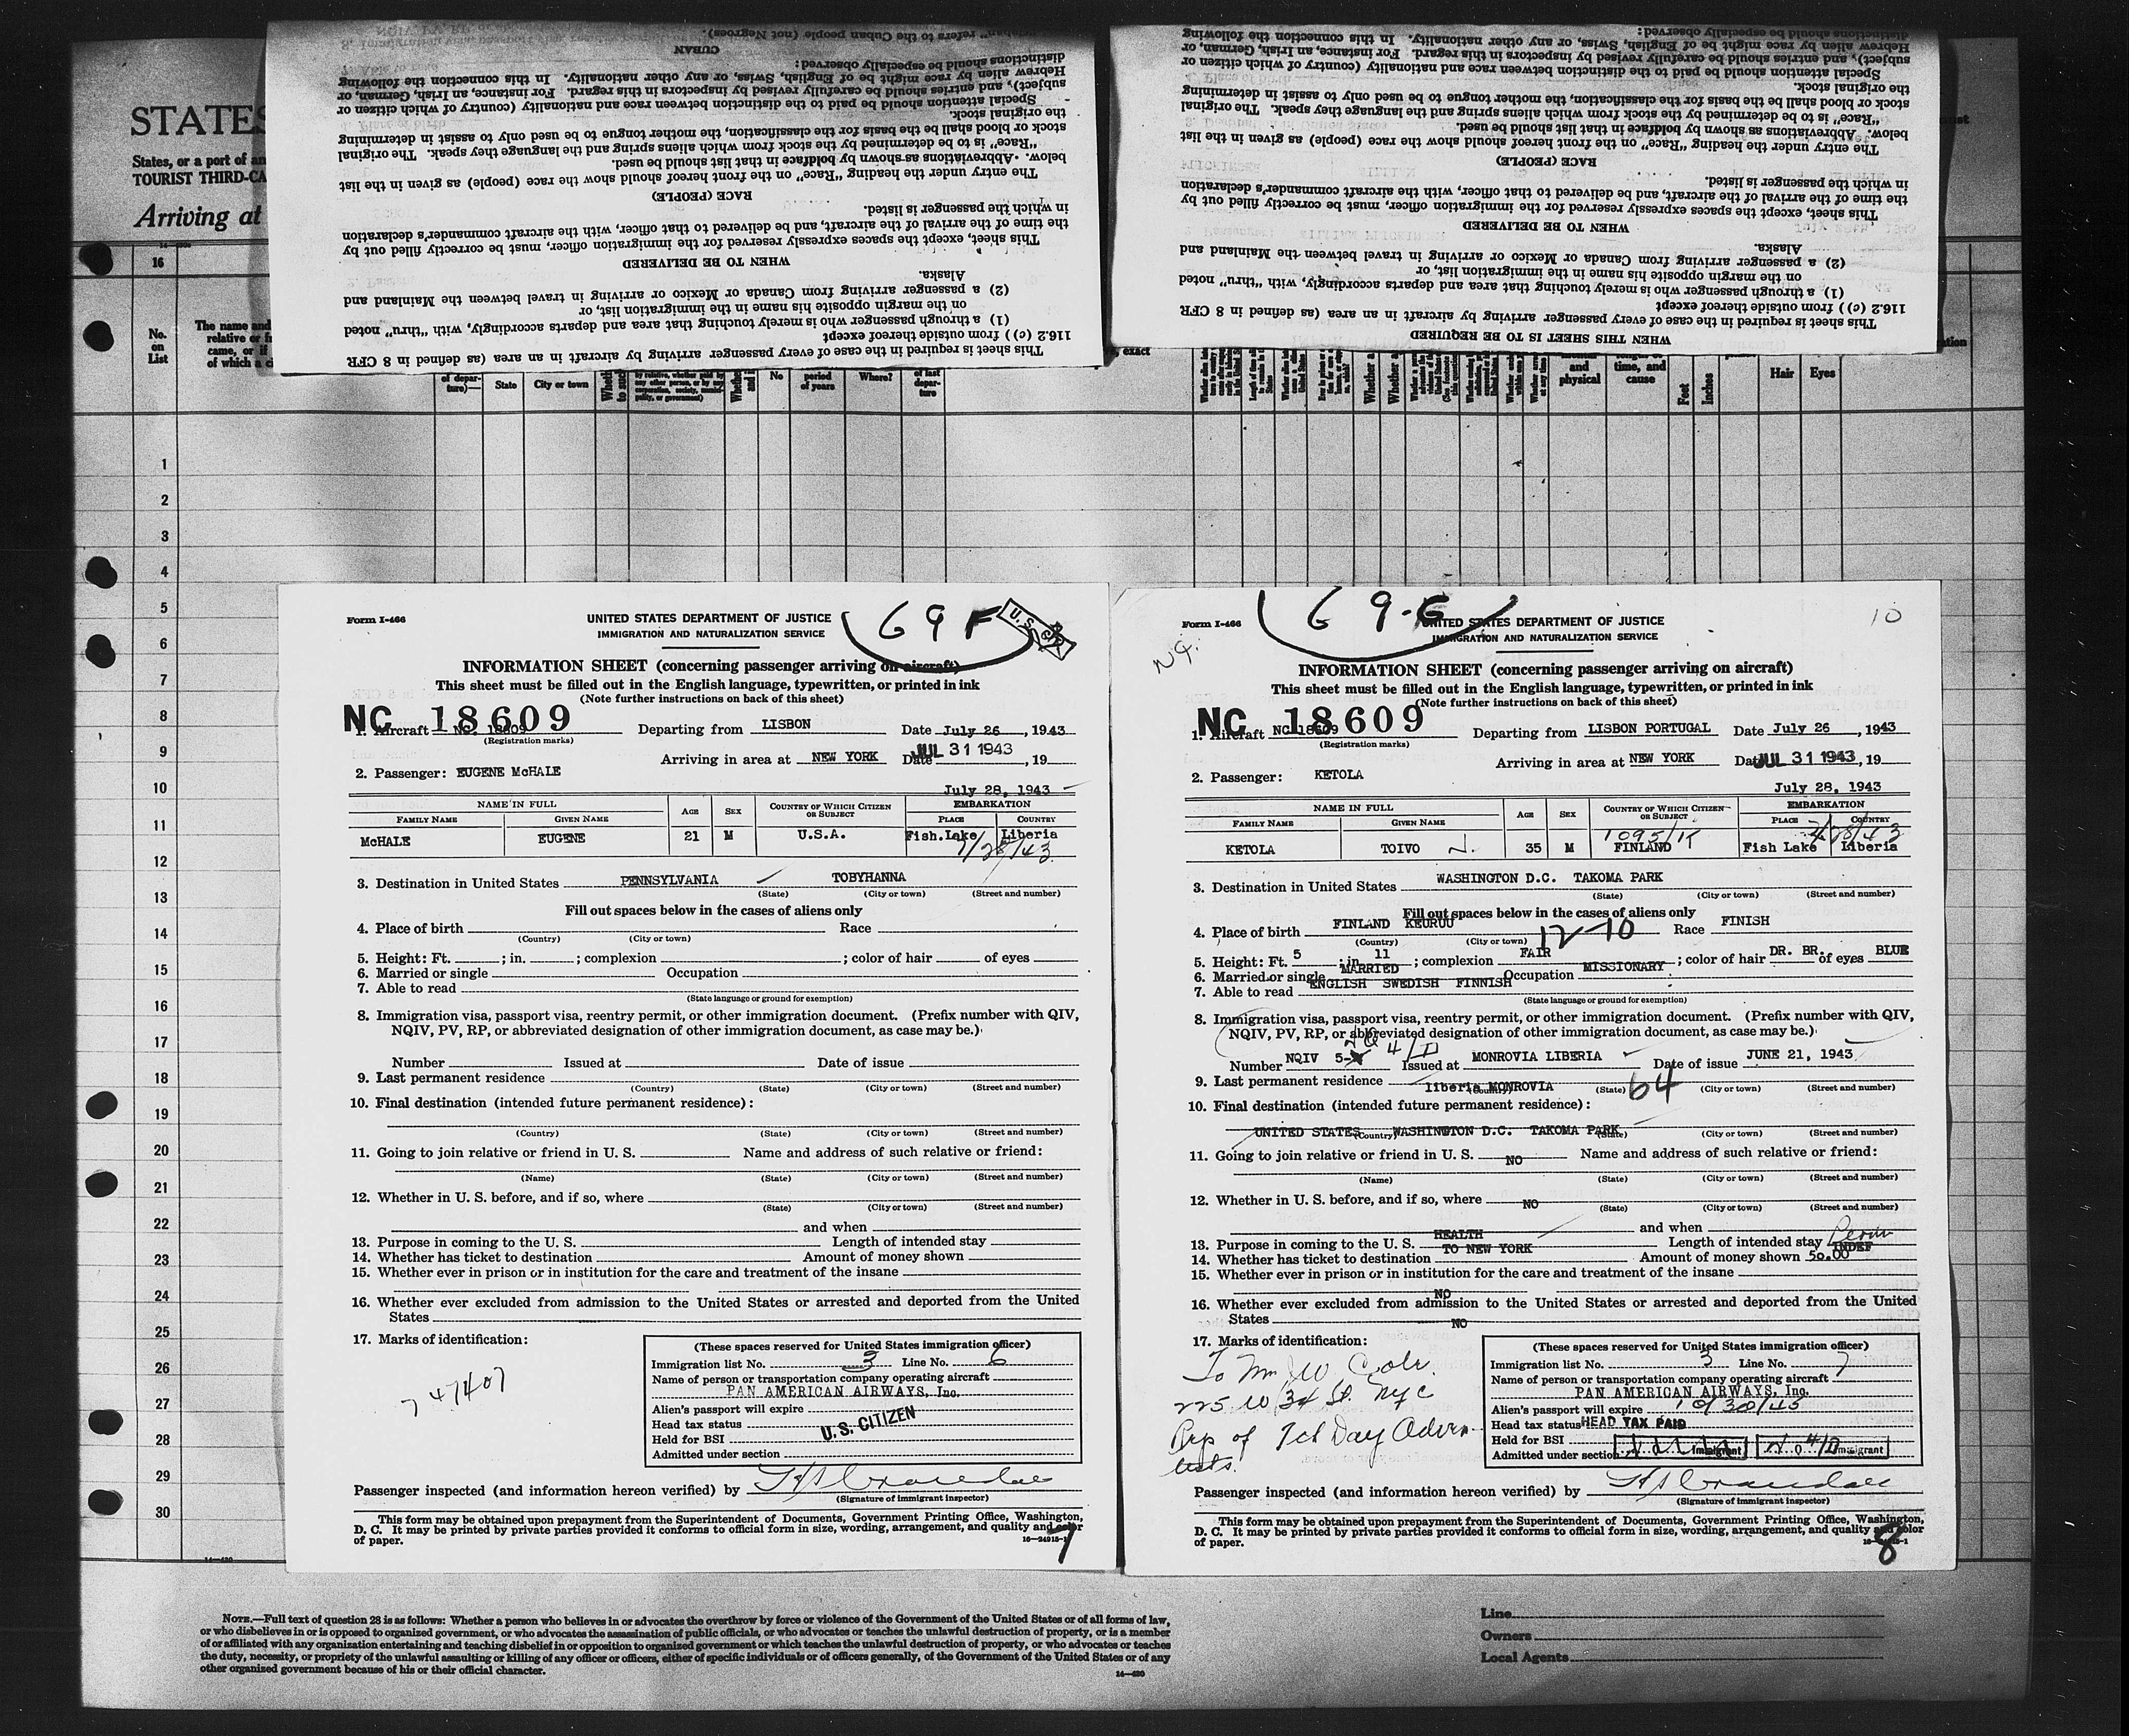 STATES
States, or a port of an
TOURIST THIRD-CA
Arriving at
16
No.
on
List
The name and
relative or fr
came, or if
of which a c
"an" refers to the Cuban people (not Negroes).
CUBAN
distinctions should be especially observed:
Hebrew alien by race might be of English, Swiss, or any other nationality. In this connection the following
subject), and entries should be carefully revised by inspectors in this regard. For instance, an Irish, German, or
Special attention should be paid to the distinction between race and nationality (country of which citizen or
the original stock.
stock or blood shall be the basis for the classification, the mother tongue to be used only to assist in determining
"Race" is to be determined by the stock from which aliens spring and the language they speak. The original
below. Abbreviations as shown by boldface in that list should be used.
The entry under the heading "Race" on the front hereof should show the race (people) as given in the list
RACE (PEOPLE)
in which the passenger is listed.
the time of the arrival of the aircraft, and be delivered to that officer, with the aircraft commander's declaration
This sheet, except the spaces expressly reserved for the immigration officer, must be correctly filled out by
WHEN TO BE DELIVERED
Alaska.
(2) a passenger arriving from Canada or Mexico or arriving in travel between the Mainland and
on the margin opposite his name in the immigration list, or
(1) a through passenger who is merely touching that area and departs accordingly, with "thru" noted
116.2 (c)) from outside thereof except
This sheet is required in the case of every passenger arriving by aircraft in an area (as defined in 8 CFR
distinctions should be especially observed:
Hebrew alien by race might be of English, Swiss, or any other nationality. In this connection the following
subject), and entries should be carefully revised by inspectors in this regard. For instance, an Irish, German, or
Special attention should be paid to the distinction between race and nationality (country of which citizen or
the original stock.
stock or blood shall be the basis for the classification, the mother tongue to be used only to assist in determining
"Race" is to be determined by the stock from which aliens spring and the language they speak. The original
below. Abbreviations as shown by boldface in that list should be used.
The entry under the heading "Race" on the front hereof should show the race (people) as given in the list
RACE (PEOPLE)
in which the passenger is listed.
the time of the arrival of the aircraft, and be delivered to that officer, with the aircraft commander's declaration
This sheet, except the spaces expressly reserved for the immigration officer, must be correctly filled out by
WHEN TO BE DELIVERED
Alaska.
(2) a passenger arriving from Canada or Mexico or arriving in travel between the Mainland and
on the margin opposite his name in the immigration list, or
(1) a through passenger who is merely touching that area and departs accordingly, with "thru" noted
116.2 (c)) from outside thereof except
This sheet is required in the case of every passenger arriving by aircraft in an area (as defined in 8 CFR
WHEN THIS SHEET IS TO BE REQUIRED
of depar-
ture)—
State
City or town
by relative, whether paid by
any other person, or by any
corporation, society,
pality, or government)
No
period
of years
Where?
of last
depar-
ture
exact
and
physical
time, and
cause
Feet
Inches
Hair
Eyes
1
2
3
4
5
6
7
8
9
10
11
12
13
14
15
16
17
18
19
20
21
22
23
24
25
26
27
28
29
30
Form I-466
UNITED STATES DEPARTMENT OF JUSTICE
IMMIGRATION AND NATURALIZATION SERVICE
69 F
U.S. CIT
INFORMATION SHEET (concerning passenger arriving on aircraft)
This sheet must be filled out in the English language, typewritten, or printed in ink
(Note further instructions on back of this sheet)
NC 18609
1. Aircraft NC. 18609 Departing from LISBON Date July 26, 1943
(Registration marks)
Arriving in area at NEW YORK Date JUL 31 1943, 19
2. Passenger: EUGENE McHALE
July 28, 1943
NAME IN FULL AGE SEX COUNTRY OF WHICH CITIZEN OR SUBJECT EMBARKATION
FAMILY NAME GIVEN NAME PLACE COUNTRY
McHALE EUGENE 21 M U.S.A. Fish.Lake Liberia
7/28/43
3. Destination in United States PENNSYLVANIA TOBYHANNA
(State) (City or town) (Street and number)
Fill out spaces below in the cases of aliens only
4. Place of birth Race
(Country) (City or town)
5. Height: Ft. ; in. ; complexion ; color of hair of eyes
6. Married or single Occupation
7. Able to read
(State language or ground for exemption)
8. Immigration visa, passport visa, reentry permit, or other immigration document. (Prefix number with QIV,
NQIV, PV, RP, or abbreviated designation of other immigration document, as case may be.)
Number Issued at Date of issue
9. Last permanent residence
(Country) (State) (City or town) (Street and number)
10. Final destination (intended future permanent residence):
(Country) (State) (City or town) (Street and number)
11. Going to join relative or friend in U. S. Name and address of such relative or friend:
(Name) (State) (City or town) (Street and number)
12. Whether in U. S. before, and if so, where
(State) (City or town) (Street and number)
and when
13. Purpose in coming to the U. S. Length of intended stay
14. Whether has ticket to destination Amount of money shown
15. Whether ever in prison or in institution for the care and treatment of the insane
16. Whether ever excluded from admission to the United States or arrested and deported from the United
States
17. Marks of identification:
747407
(These spaces reserved for United States immigration officer)
Immigration list No. 3 Line No. 6
Name of person or transportation company operating aircraft
PAN AMERICAN AIRWAYS, Inc.
Alien's passport will expire
Head tax status U.S. CITIZEN
Held for BSI
Admitted under section
Passenger inspected (and information hereon verified) by
(Signature of immigrant inspector)
This form may be obtained upon prepayment from the Superintendent of Documents, Government Printing Office, Washington,
D. C. It may be printed by private parties provided it conforms to official form in size, wording, arrangement, and quality and color
of paper.
16—24915-1
7
Form I-466
69-G
10
UNITED STATES DEPARTMENT OF JUSTICE
IMMIGRATION AND NATURALIZATION SERVICE
NQ.
INFORMATION SHEET (concerning passenger arriving on aircraft)
This sheet must be filled out in the English language, typewritten, or printed in ink
(Note further instructions on back of this sheet)
NC 18609
1. Aircraft NC 18609 Departing from LISBON PORTUGAL Date July 26, 1943
(Registration marks)
Arriving in area at NEW YORK Date JUL 31 1943, 19
2. Passenger: KETOLA
July 28, 1943
NAME IN FULL AGE SEX COUNTRY OF WHICH CITIZEN OR SUBJECT EMBARKATION
FAMILY NAME GIVEN NAME PLACE COUNTRY
1095/K 7/28/43
KETOLA TOIVO N. 35 M FINLAND Fish Lake Liberia
3. Destination in United States WASHINGTON D.C. TAKOMA PARK
(State) (City or town) (Street and number)
Fill out spaces below in the cases of aliens only
4. Place of birth FINLAND KEURUU Race FINISH
(Country) (City or town) 12-10
5. Height: Ft. 5 ; in. 11 ; complexion FAIR ; color of hair DR. BR. of eyes BLUE
6. Married or single MARRIED Occupation MISSIONARY
7. Able to read ENGLISH SWEDISH FINNISH
(State language or ground for exemption)
8. Immigration visa, passport visa, reentry permit, or other immigration document. (Prefix number with QIV,
NQIV, PV, RP, or abbreviated designation of other immigration document, as case may be.)
Number NQIV 5- 4/D Issued at MONROVIA LIBERIA Date of issue JUNE 21, 1943
9. Last permanent residence liberia MONROVIA 64
(Country) (State) (City or town) (Street and number)
10. Final destination (intended future permanent residence):
UNITED STATES WASHINGTON D.C. TAKOMA PARK
(Country) (State) (City or town) (Street and number)
11. Going to join relative or friend in U. S. NO Name and address of such relative or friend:
(Name) (State) (City or town) (Street and number)
12. Whether in U. S. before, and if so, where NO
(State) (City or town) (Street and number)
and when
13. Purpose in coming to the U. S. HEALTH Length of intended stay INDEF Perm
14. Whether has ticket to destination TO NEW YORK Amount of money shown 50.00
15. Whether ever in prison or in institution for the care and treatment of the insane
NO
16. Whether ever excluded from admission to the United States or arrested and deported from the United
States NO
17. Marks of identification:
To Mr W Cole.
225 W 34 St. NYC
Rep of 7th Day Adven
tists.
(These spaces reserved for United States immigration officer)
Immigration list No. 3 Line No. 7
Name of person or transportation company operating aircraft
PAN AMERICAN AIRWAYS, Inc.
Alien's passport will expire 10/30/45
Head tax status HEAD TAX PAID
Held for BSI
Admitted under section Immigrant 4/D Immigrant
Passenger inspected (and information hereon verified) by
(Signature of immigrant inspector)
This form may be obtained upon prepayment from the Superintendent of Documents, Government Printing Office, Washington,
D. C. It may be printed by private parties provided it conforms to official form in size, wording, arrangement, and quality and color
of paper.
8
NOTE.—Full text of question 28 is as follows: Whether a person who believes in or advocates the overthrow by force or violence of the Government of the United States or of all forms of law,
or who disbelieves in or is opposed to organized government, or who advocates the assassination of public officials, or who advocates or teaches the unlawful destruction of property, or is a member
of or affiliated with any organization entertaining and teaching disbelief in or opposition to organized government or which teaches the unlawful destruction of property, or who advocates or teaches
the duty, necessity, or propriety of the unlawful assaulting or killing of any officer or officers, either of specific individuals or of officers generally, of the Government of the United States or of any
other organized government because of his or their official character.
14—430
Line
Owners
Local Agents